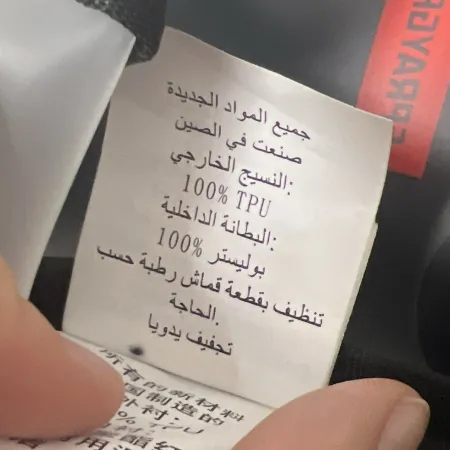 جميع المواد الجديدة
صنعت في الصين
النسيج الخارجي:
100% TPU
البطانة الداخلية:
100% بوليستر
تنظيف بقطعة قماش رطبة حسب
الحاجة.
تجفيف يدويا
所有的新材料
国制造的
外衬:
% TPU